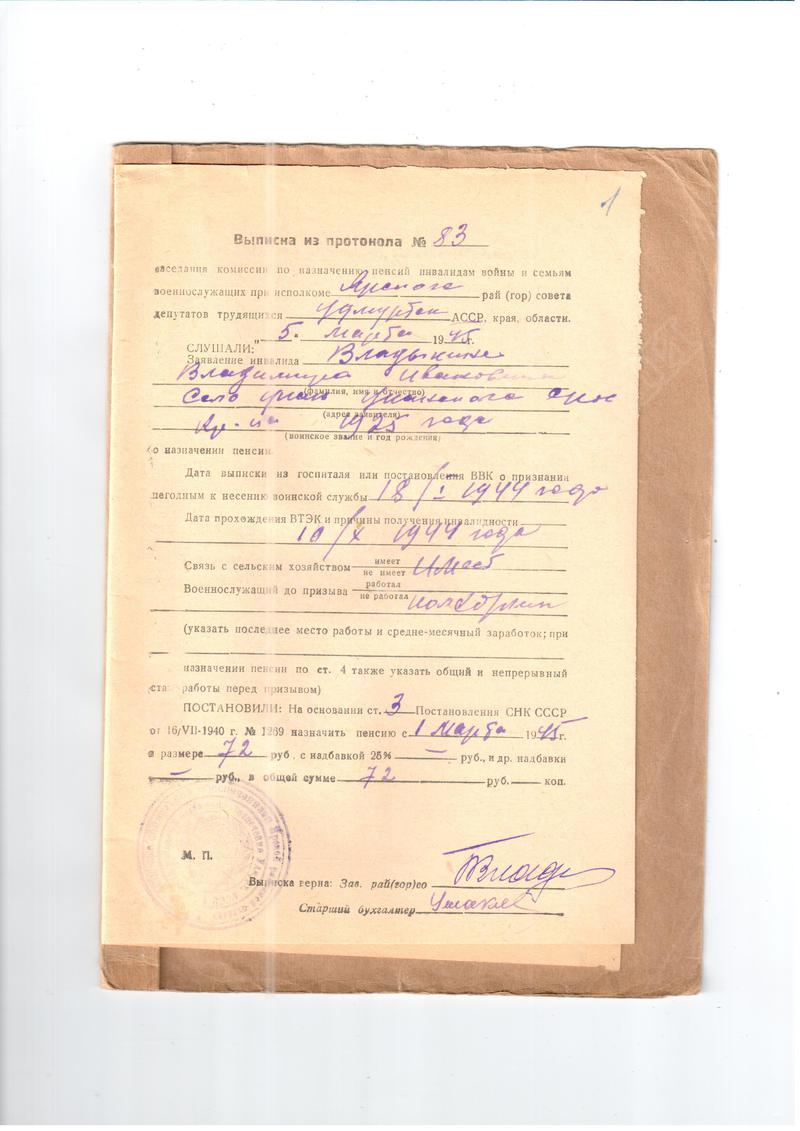 1
Выписка из протокола № 83
заседания комиссии по назначению пенсий инвалидам войны и семьям
военнослужащих при исполкоме Ярского рай (гор) совета
депутатов трудящихся Удмуртск АССР, края, области.
„ 5. марта 1945г.
СЛУШАЛИ:
Заявление инвалида Владыкина
Владимира Ивановича
(фамилия, имя и отчество)
Село Укан Уканского
(адрес заявителя)
1925 года
(воинское звание и год рождения)
о назначении пенсии.
Дата выписки из госпиталя или постановления ВВК о признании
негодным к несению воинской службы 18/I 1944 года
Дата прохождения ВТЭК и причины получения инвалидности
10/X 1944 года
Связь с сельским хозяйством имеет / не имеет Имеет
Военнослужащий до призыва работал / не работал
(указать последнее место работы и средне-месячный заработок; при
назначении пенсии по ст. 4 также указать общий и непрерывный
стаж работы перед призывом)
ПОСТАНОВИЛИ: На основании ст. 3 Постановления СНК СССР
от 16/VII-1940 г. № 1269 назначить пенсию с 1 марта 1945г.
в размере 72 руб, с надбавкой 25% — руб., и др. надбавки
— руб., в общей сумме 72 руб. — коп.
М. П.
Выписка верна: Зав. рай(гор)со
Старший бухгалтер